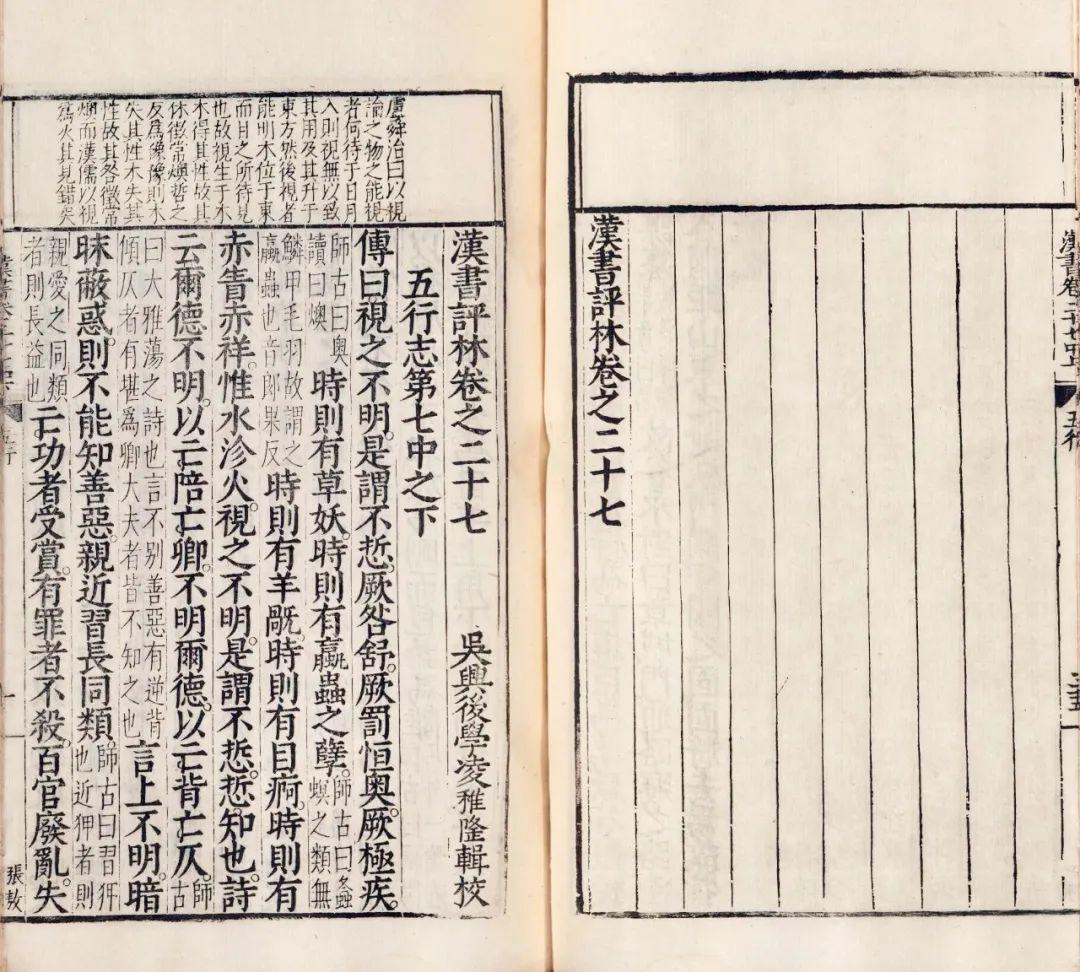 漢書卷二十七中
五行
漢書評林卷之二十七
虞舜治曰以視
論之物之能視
者何待于日月
入則視無以致
其用及其升于
東方然後視者
能明木位于東
而目之所待見
也故視生于木
木得其性故其
休徵常燠哲之
反為豫豫則木
失其性木失其
性故其咎徵常
燠而漢儒以視
為火其見錯矣
漢書評林卷之二十七
吳興後學凌稚隆輯校
五行志第七中之下
傳曰視之不明。是謂不悊。厥咎舒。厥罰恒奧。厥極疾。
師古曰奧讀曰燠時則有草妖。時則有蠃蟲之孽。師古曰螽螟之類無
鱗甲毛羽故謂之蠃蟲也音郎果反時則有羊旤。時則有目痾。時則有
赤眚赤祥。惟水沴火。視之不明。是謂不悊。悊。知也。詩
云爾德不明。以亡陪亡卿。不明爾德。以亡背亡仄。師古
曰大雅蕩之詩也言不別善惡有逆背傾仄者有堪為卿大夫者皆不知之也言上不明。暗
昧蔽惑。則不能知善惡。親近習。長同類。師古曰習狎也近狎者則
親愛之同類者則長益也亡功者受賞。有罪者不殺。百官廢亂。失
張敖